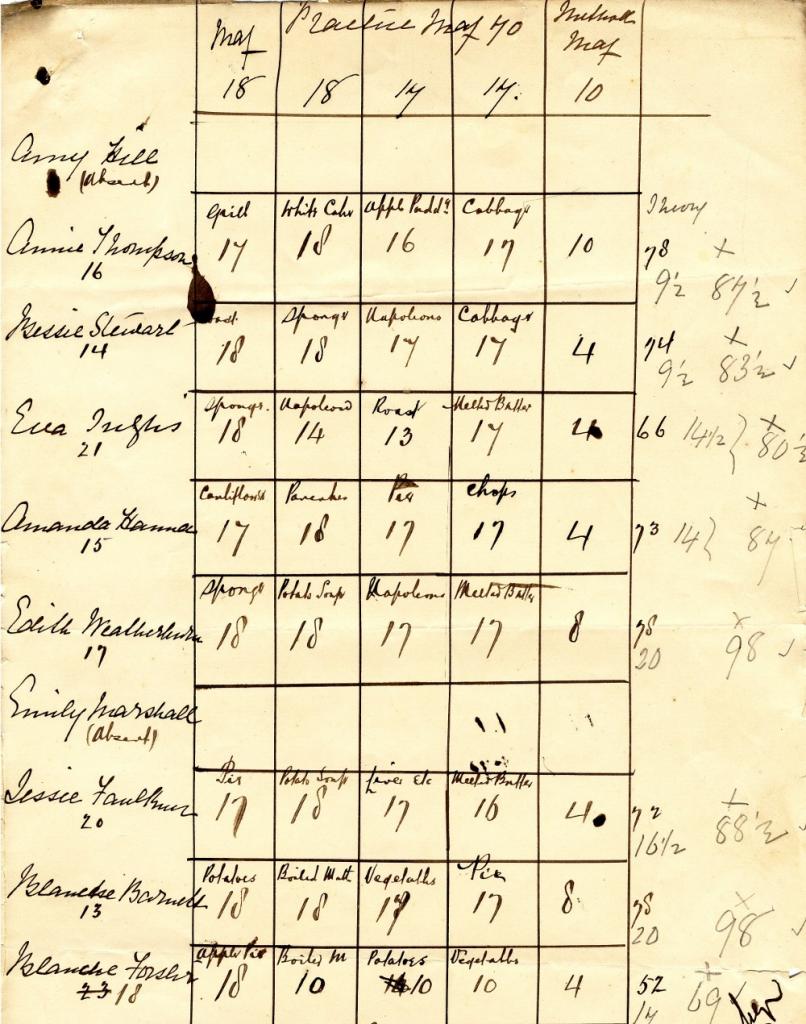 Max Practice Max 70 Method Max
18 18 17 17. 10
Amy Hill
(Absent)
Grill White Cake Apple Puddg Cabbage Theory
Annie Thompson 17 18 16 17 10 78 x
16 9½ 87½ ✓
Sponge Napoleons Cabbage
Bessie Stewart 18 18 17 17 4 74 x
14 9½ 83½ ✓
Sponge. Napoleons Roast Melted Butter
Eva 18 14 13 17 4 66 14½ } x 80½
21
Cauliflower Pancakes Pie Chops
Amanda Hanna 17 18 17 17 4 73 14 } x 87
15
Sponge Potato Soup Napoleons Melted Butter
Edith Weatherburn 18 18 17 17 8 78 x
17 20 98 ✓
Emily Marshall
(Absent)
Pie Potato Soup Liver Etc Melted Butter
Jessie Faulkner 17 18 17 16 4 72 x
20 16½ 88½ ✓
Potatoes Boiled Mutt Vegetables Pie
Blanche Barnett 18 18 17 17 8 78 x
13 20 98 ✓
Apple Pie Boiled M Potatoes Vegetables
Blanche Forster 18 10 10 10 4 52 x
23 18 17 69